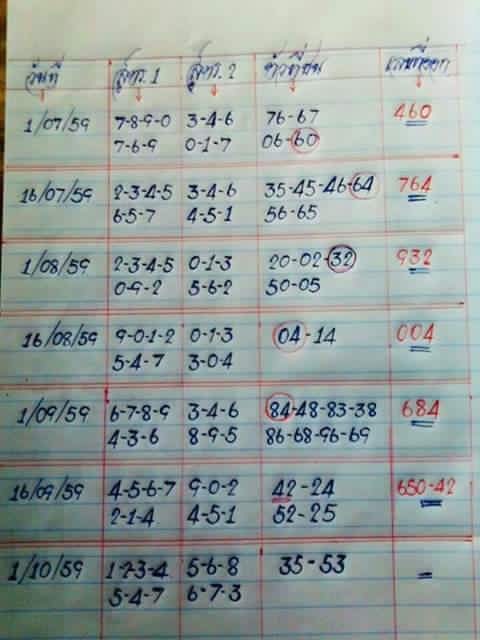 วันที่ สูตร 1 สูตร 2 ตัวที่ชน เลขที่ออก
1/07/59 7-8-9-0 3-4-6 76-67 460
7-6-9 0-1-7 06-60
16/07/59 2-3-4-5 3-4-6 35-45-46-64 764
6-5-7 4-5-1 56-65
1/08/59 2-3-4-5 0-1-3 20-02-32 932
0-9-2 5-6-2 50-05
16/08/59 9-0-1-2 0-1-3 04-14 004
5-4-7 3-0-4
1/09/59 6-7-8-9 3-4-6 84-48-83-38 684
4-3-6 8-9-5 86-68-96-69
16/09/59 4-5-6-7 9-0-2 42-24 650-42
2-1-4 4-5-1 52-25
1/10/59 1-2-3-4 5-6-8 35-53 =
5-4-7 6-7-3